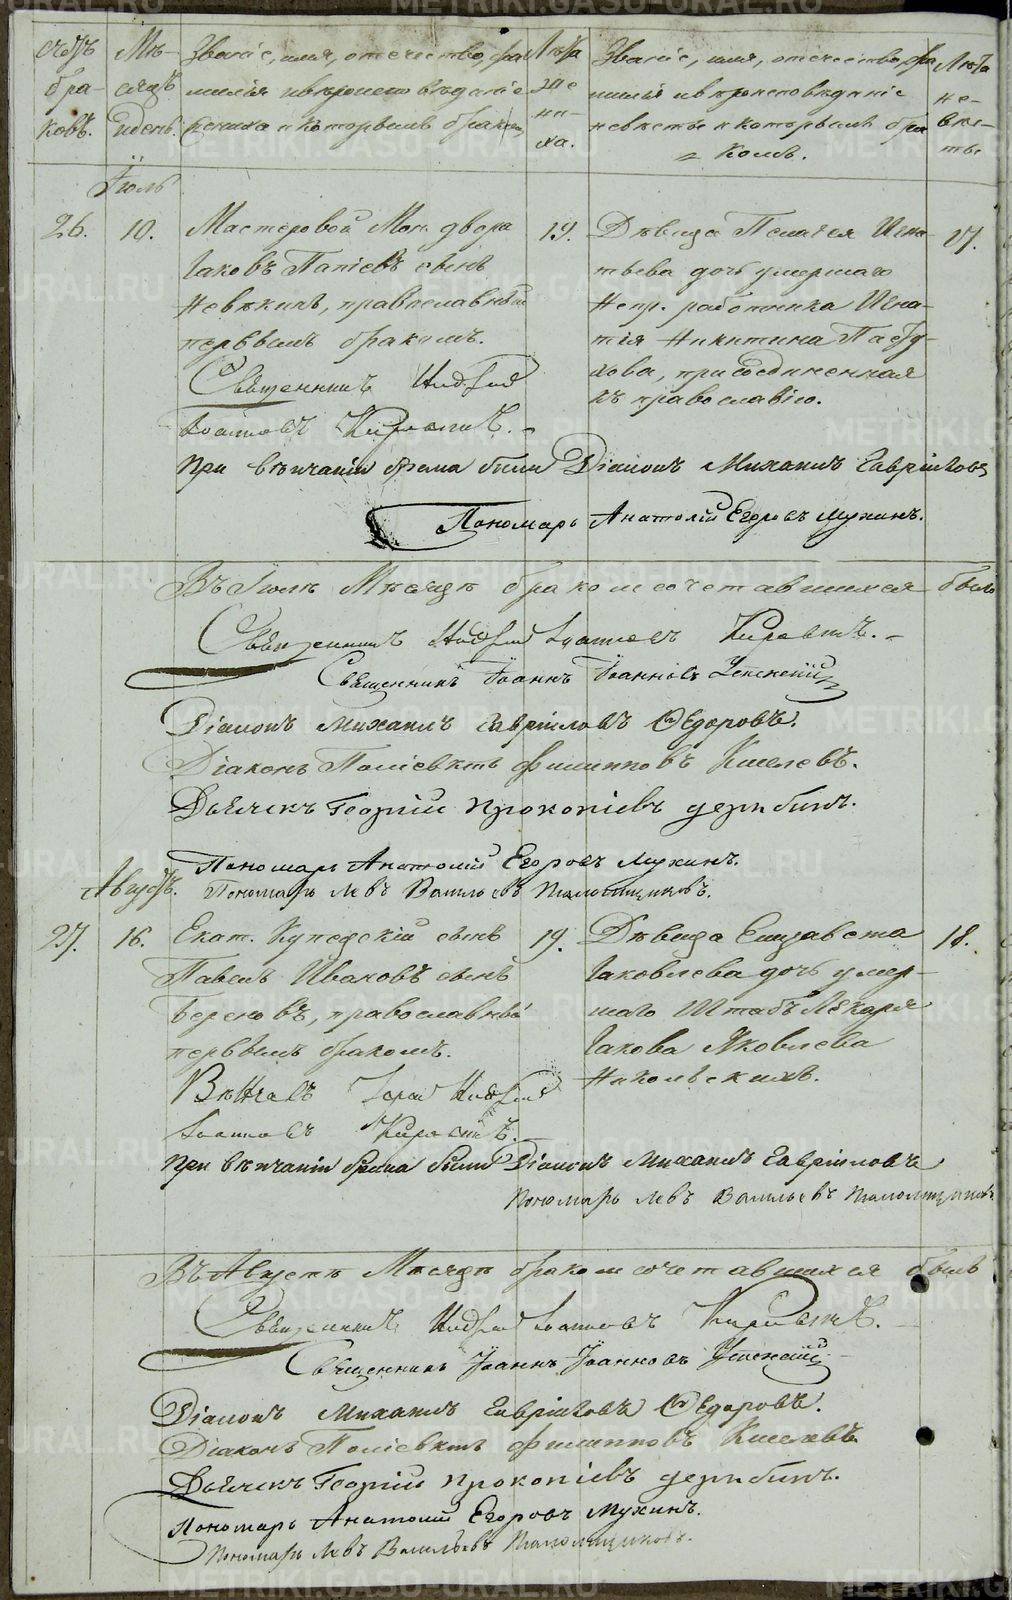 Счетъ бра- ковъ.
Мѣ- сяцъ и день.
Званіе, имя, отечество, фа- милія и вѣроисповѣданіе жениха и которымъ бракомъ
Лѣта же- ни- ха.
Званіе, имя, отечество, фа- милія и вѣроисповѣданіе невѣсты и которымъ бра- комъ.
Лѣта не- вѣс- ты.
Іюль
26.
10.
Мастеровой Мон. двора
Іаковъ
сынъ
православный
первымъ бракомъ.
Священникъ
Іоанновъ
19.
Дѣвица Пелагея Игна-
тьева дочь умершаго
Непр. работника Игна-
тія Никитина
присоединенная
къ православію.
17.
При вѣнчаніи брака были Діаконъ Михаилъ Гавріиловъ
Пономарь Анатолій Егоровъ Мухинъ.
Въ Іюлѣ Мѣсяцѣ бракомсочетавшихся было
Священникъ Іоанновъ
Священникъ Іоаннъ Іоанновъ Успенскій
Діаконъ Михаилъ Гавріиловъ Ѳедоровъ.
Діаконъ Поліевктъ Филипповъ Киселевъ.
Дьячекъ Георгій Прокопіевъ Дерябинъ.
Пономарь Анатолій Егоровъ Мухинъ.
Пономарь Левъ Васильевъ
Августъ.
27.
16.
Екат. Купеческій сынъ
Павелъ Ивановъ сынъ
православный
первымъ бракомъ.
Вѣнчалъ Іерей
Іоанновъ
19.
Дѣвица Елизавета
Іаковлева дочь умер-
шаго Штабъ Лѣкаря
Іакова Яковлева
Никольскихъ.
18.
При вѣнчаніи брака были Діаконъ Михаилъ Гавріиловъ
Пономарь Левъ Васильевъ
Въ Августѣ Мѣсяцѣ бракомсочетавшихся былъ
Священникъ Іоанновъ
Священникъ Іоаннъ Іоанновъ Успенскій
Діаконъ Михаилъ Гавріиловъ Ѳедоровъ.
Діаконъ Поліевктъ Филипповъ Киселевъ
Дьячекъ Георгій Прокопіевъ Дерябинъ.
Пономарь Анатолій Егоровъ Мухинъ.
Пономарь Левъ Васильевъ
METRIKI.GASO-URAL.RU